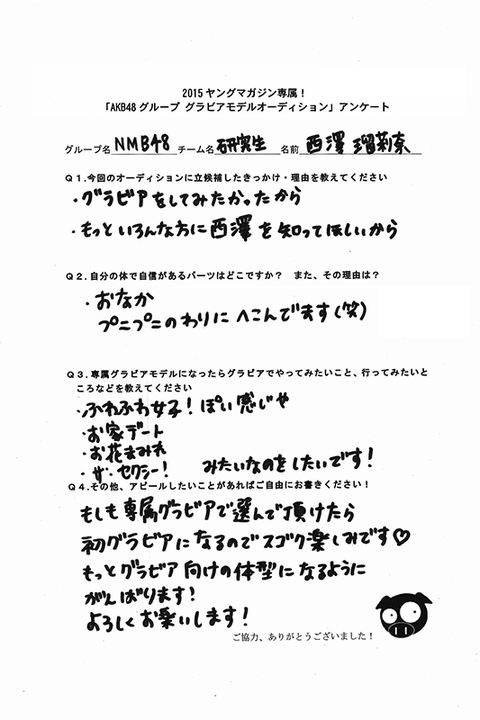 2015 ヤングマガジン専属！
「AKB48 グループ グラビアモデルオーディション」アンケート
グループ名 NMB48 チーム名 研究生 名前 西澤 瑠莉奈
Ｑ１.今回のオーディションに立候補したきっかけ・理由を教えてください
・グラビアをしてみたかったから
・もっといろんな方に西澤を知ってほしいから
Ｑ２.自分の体で自信があるパーツはどこですか？ また、その理由は？
・おなか
プニプニのわりにへこんでます(笑)
Ｑ３.専属グラビアモデルになったらグラビアでやってみたいこと、行ってみたいと
ころなどを教えてください
・ふわふわ女子！ぽい感じや
・お家デート
・お花まみれ
・ザ・セクシー！ みたいなのをしたいです！
Ｑ４.その他、アピールしたいことがあればご自由にお書きください！
もしも専属グラビアで選んで頂けたら
初グラビアになるのでスゴク楽しみです♡
もっとグラビア向けの体型になるように
がんばります！
よろしくお願いします！
ご協力、ありがとうございました！